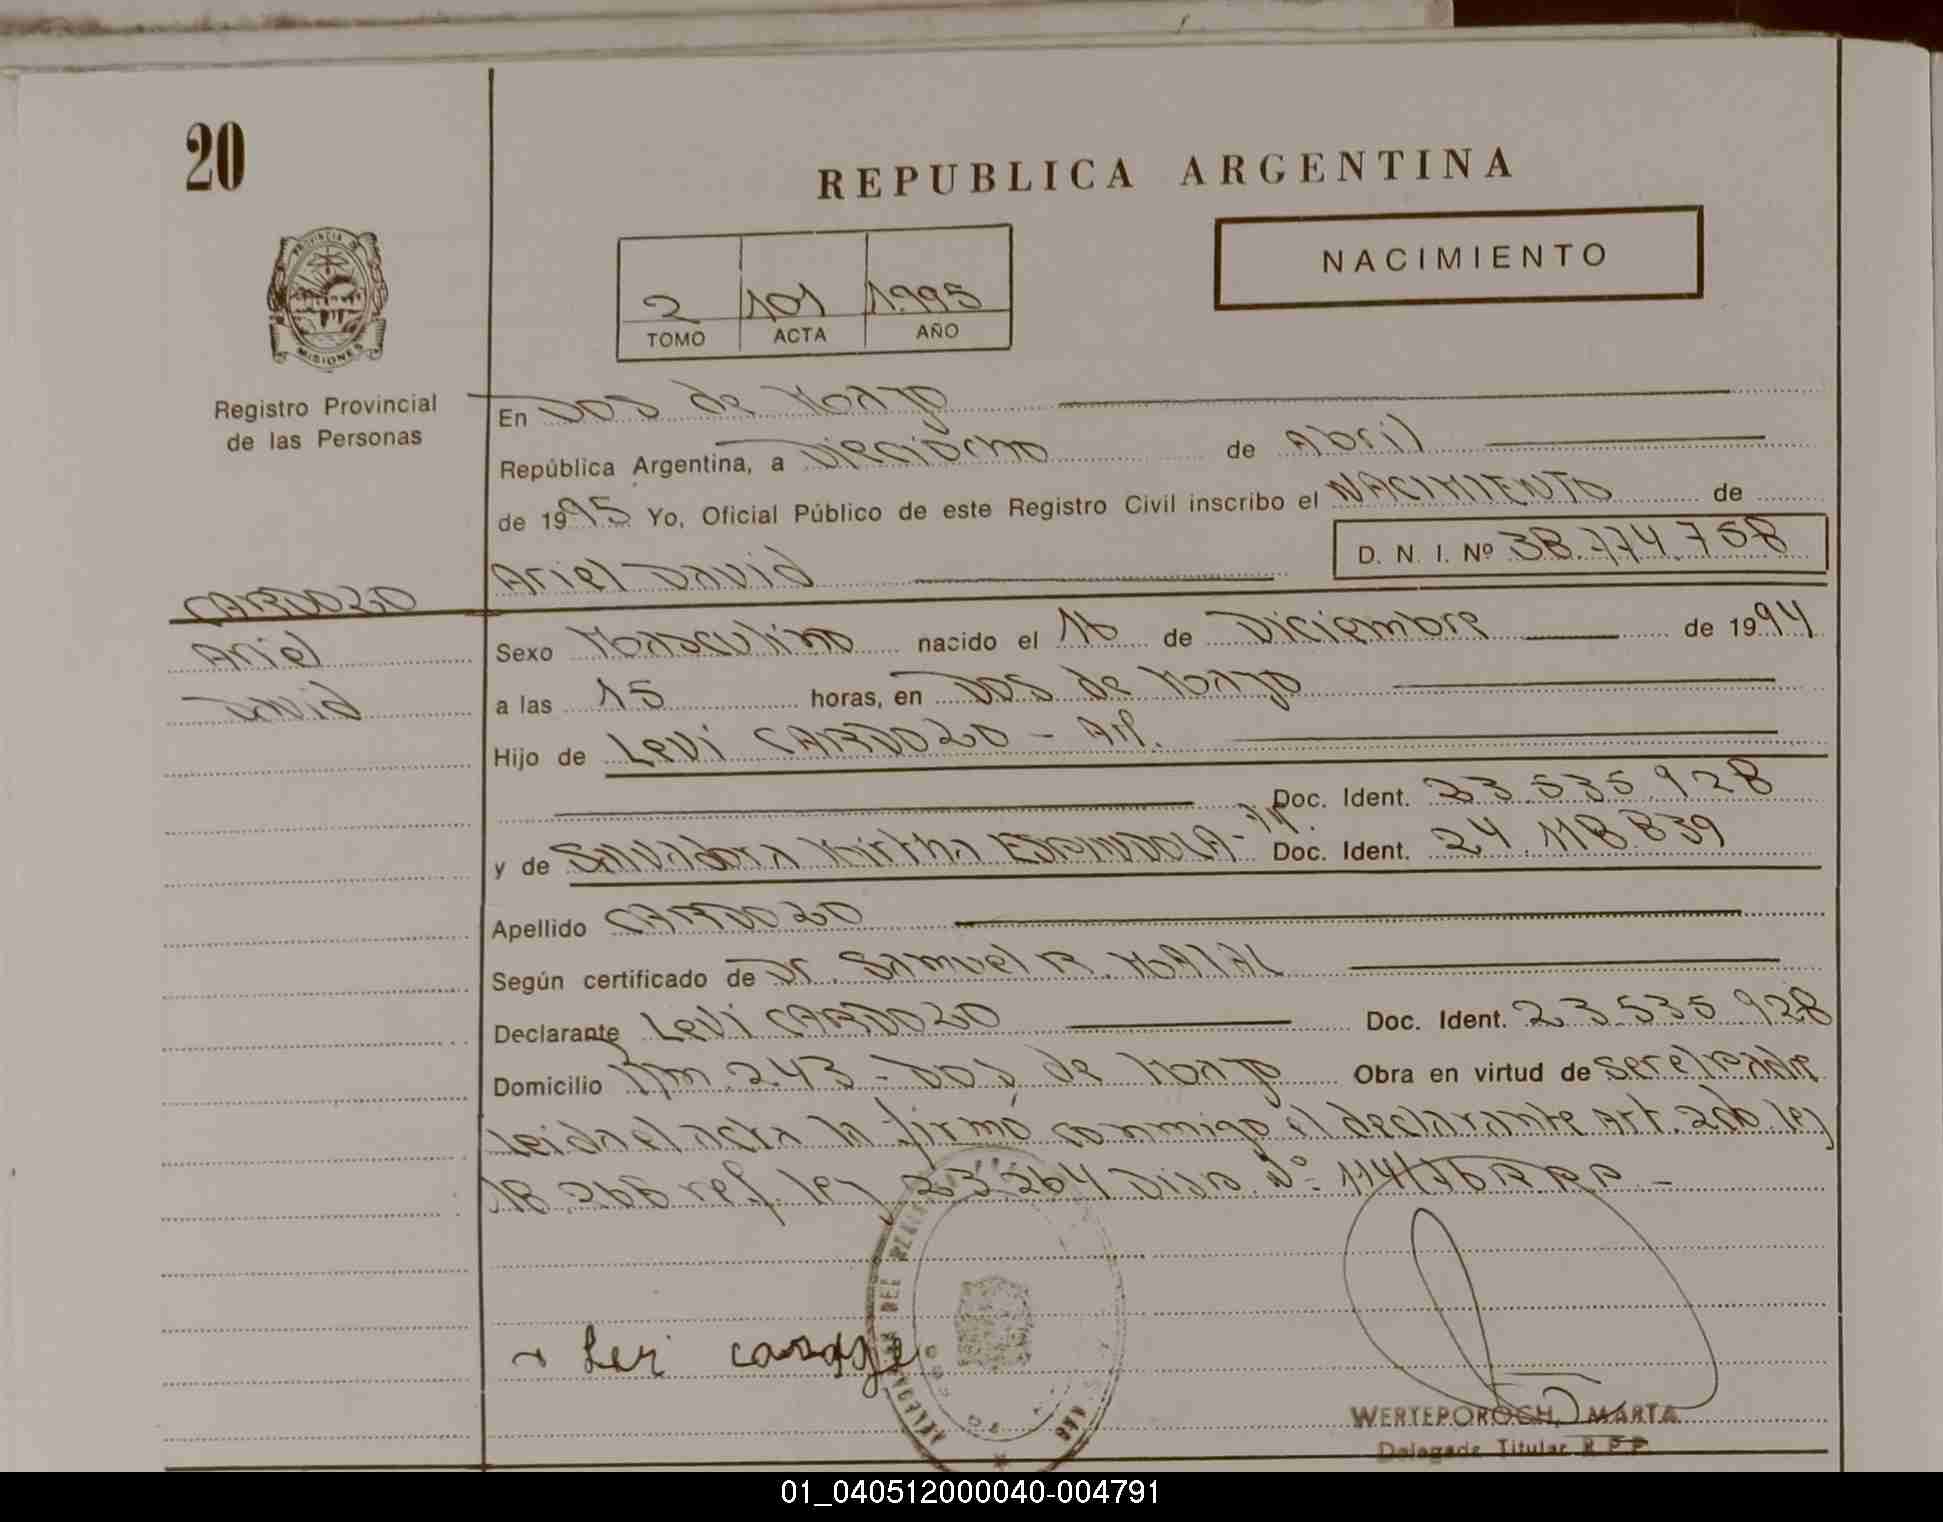 20
REPUBLICA ARGENTINA
NACIMIENTO
PROVINCIA DE
MISIONES
2 101 1995
TOMO ACTA AÑO
Registro Provincial
de las Personas
En Dos de Mayo
República Argentina, a Dieciocho de Abril
de 1995 Yo, Oficial Público de este Registro Civil inscribo el NACIMIENTO de
D. N. I. Nº 38.774.758
Ariel David
CARDOZO
Ariel
David
Sexo Masculino nacido el 16 de Diciembre de 1994
a las 15 horas, en Dos de Mayo
Hijo de Levi CARDOZO - Arg.
Doc. Ident. 23.535.928
y de Salvadora Mirtha ESPINDOLA - Arg. Doc. Ident. 24.118.839
Apellido CARDOZO
Según certificado de Dr. Samuel R.
Declarante Levi CARDOZO Doc. Ident. 23.535.928
Domicilio Km. 243 - Dos de Mayo Obra en virtud de ser el padre
Leida el acta la firmó conmigo el declarante Art. 2do ley
18.268 ref. ley 23.264 Disp. Nº 114/76 R.P.P. -
Levi
WERTEPOROCH, MARTA
Delegada Titular R.P.P.
01_040512000040-004791